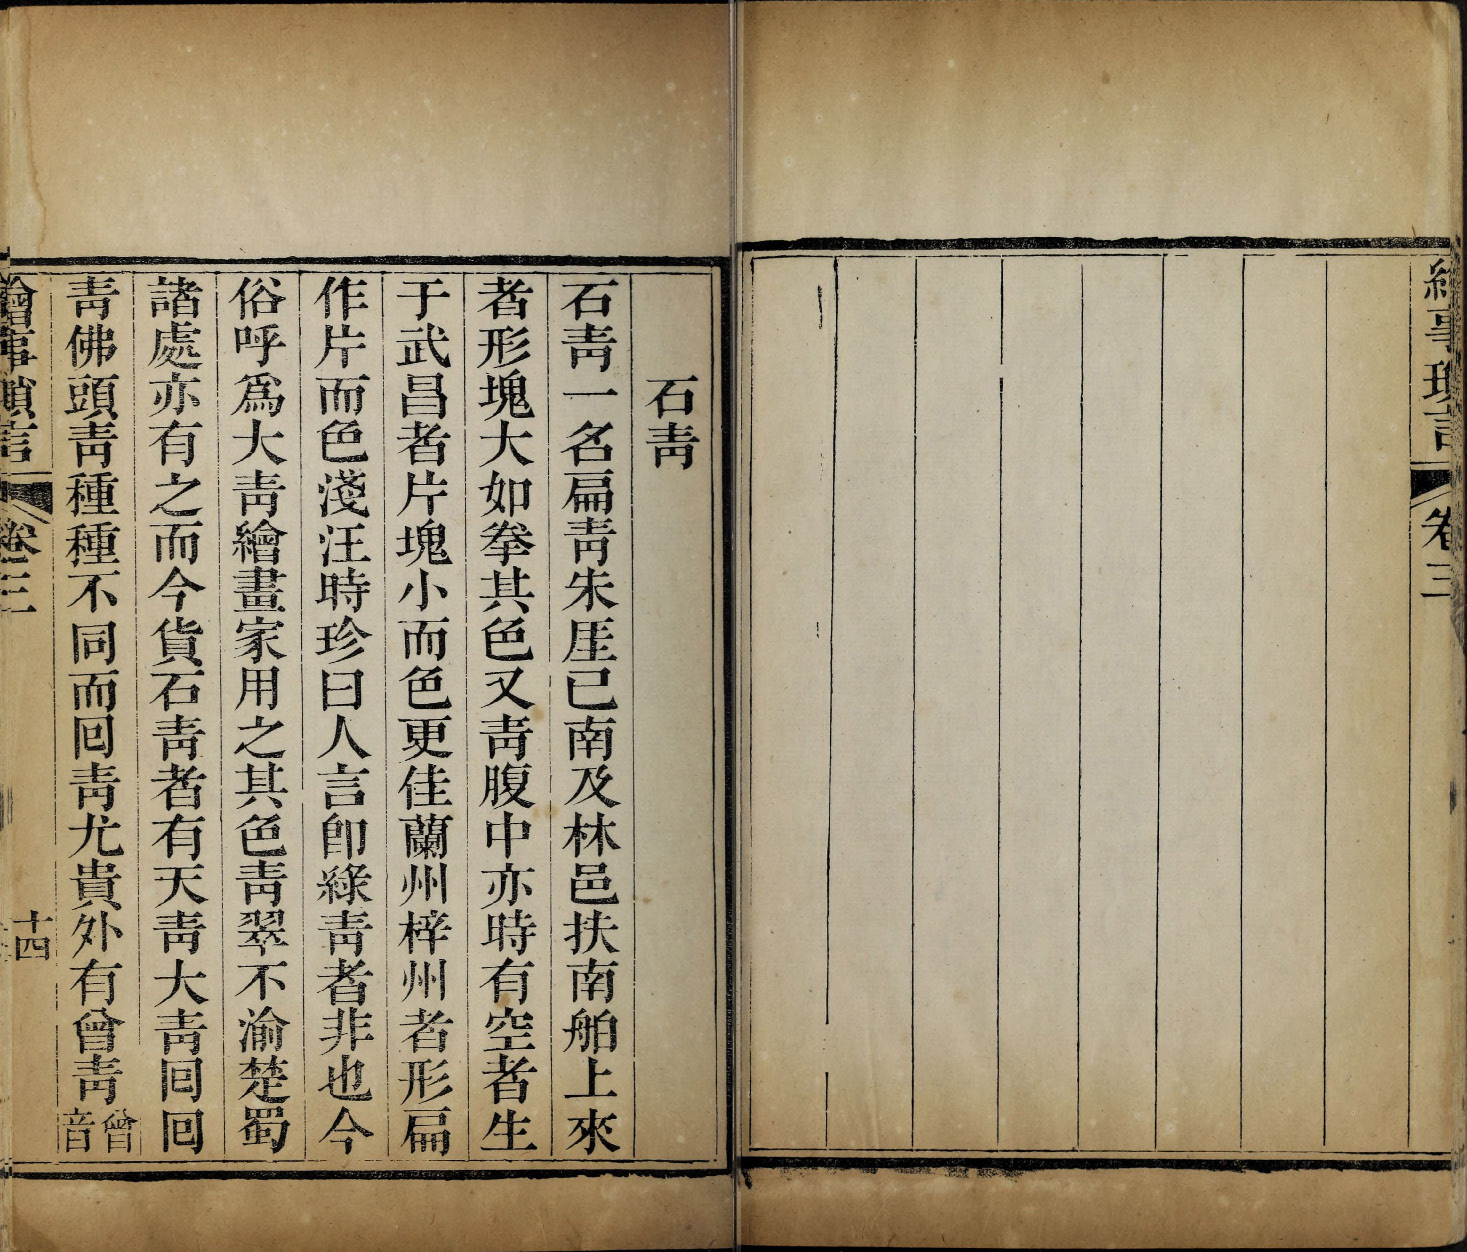 繪事瑣言
卷三
石靑
石靑一名扁靑朱厓已南及林邑扶南舶上來
者形塊大如拳其色又靑腹中亦時有空者生
于武昌者片塊小而色更佳蘭州梓州者形扁
作片而色淺汪時珍曰人言卽綠靑者非也今
俗呼爲大靑繪畫家用之其色靑翠不渝楚蜀
諸處亦有之而今貨石靑者有天靑大靑回回
靑佛頭靑種種不同而回靑尤貴外有曾靑曾
音
繪事瑣言
卷三
十四